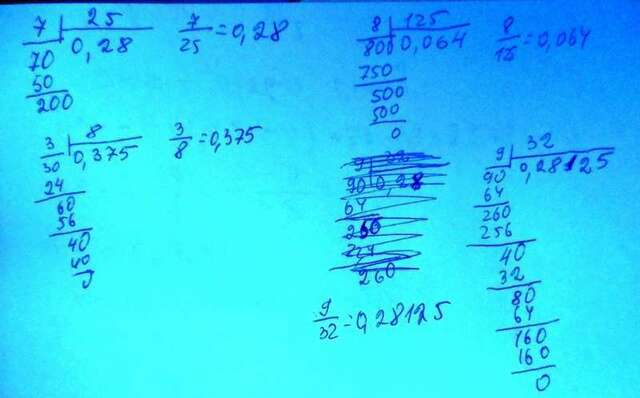 7 | 25
70 0,28
50
200
7/25=0,28
3 | 8
30 0,375
24
60
56
40
40
0
3/8=0,375
8 | 125
800 0,064
750
500
500
0
8/125=0,064
90 0,28
64
260
260
9/32=0,28125
9 | 32
90 0,28125
64
260
256
40
32
80
64
160
160
0